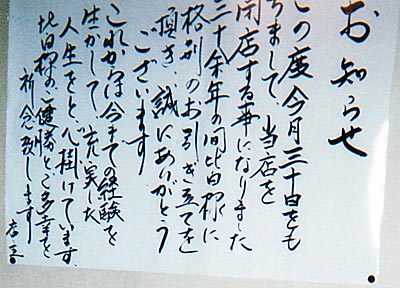 お知らせ
この度今月三十日をも
ちまして、当店を
閉店する事になりました
三十余年の間皆様に
格別のお引き立てを
頂き、誠にありがとう
ございます
これからは今までの経験を
生かして、充実した
人生をと、心掛けています。
皆様の、ご健勝とご多幸を
祈念致します
店主